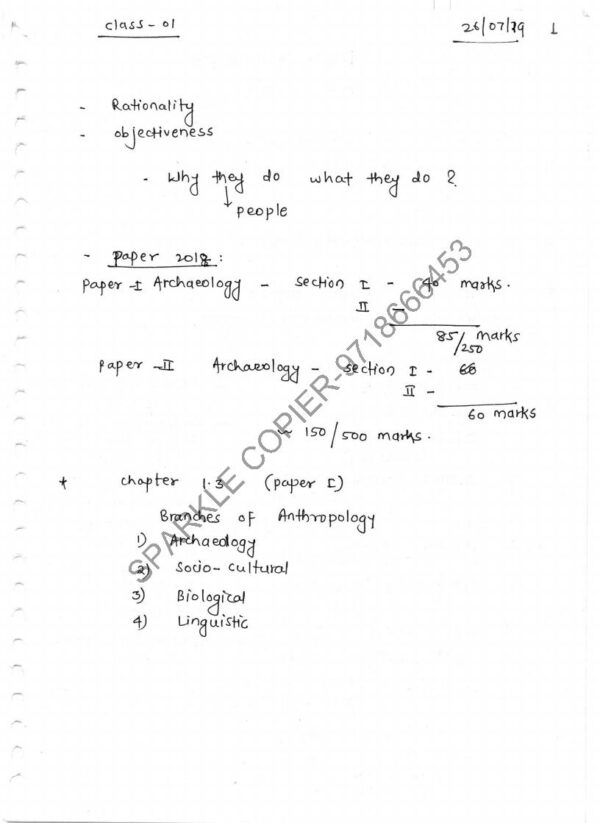 class-01
26/07/19 1
- Rationality
- objectiveness
- Why they do what they do ?
people
- paper 2018 :
paper-I Archaeology - section I - 40 marks.
II -
85/250 marks
paper -II Archaeology - section I - 68
II -
60 marks
~ 150/500 marks.
* chapter 1.3 (paper I)
Branches of Anthropology
1) Archaeology
2) Socio-cultural
3) Biological
4) Linguistic
SPARKLE COPIER-9718666453